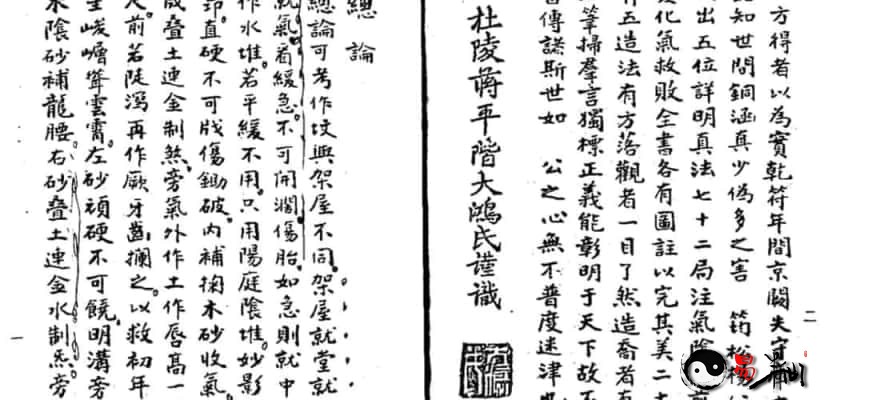 方得者以為寶乾符年間京闕失守
知世間銅涵真少偽多之害 筠松楊
出五位詳明真法七十二局注氣陰
化氣救敗全書各有圖註以完其美二
五造法有方落觀者一目了然造喬者有
筆掃羣言獨標正義能彰明于天下故
傳諸斯世如 公之心無不普度迷津
杜陵蒋平階大鴻氏謹識
總論
總論可考作坟與架屋不同架屋就堂就
就氣看緩急不可開濶傷胎如急則就中
作水堆若平緩不用只用陽庭陰堆妙影
直硬不可戕傷鋤破内補掬木砂收氣
成叠土連金制煞旁氣外作土作唇高一
前若陡瀉再作厥牙齒攔之以救初年
峻嶒聳雲霄左砂頑硬不可饒明溝旁
陰砂補龍腰右砂叠土連金水制炁旁
一
二
易